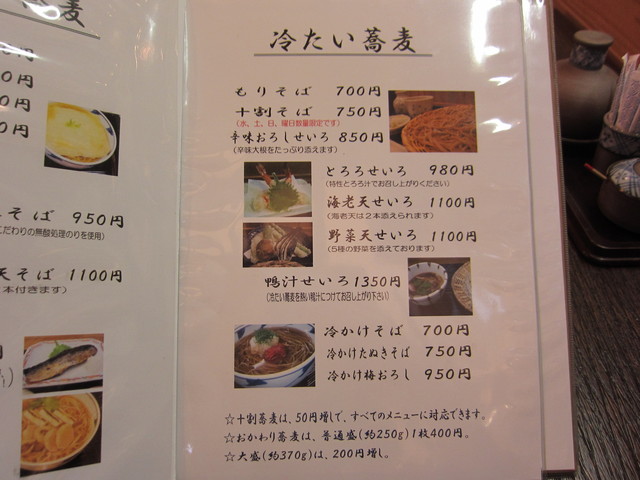 蕎麦
そば 950円
こだわりの無酸処理のりを使用)
天そば 1100円
本付きます)
冷たい蕎麦
もりそば 700円
十割そば 750円
(水、土、日、曜日数量限定です)
辛味おろしせいろ 850円
(辛味大根をたっぷり添えます)
とろろせいろ 980円
(特性とろろ汁でお召し上がりください)
海老天せいろ 1100円
(海老天は2本添えられます)
野菜天せいろ 1100円
(5種の野菜を添えております)
鴨汁せいろ 1350円
(冷たい蕎麦を熱い鴨汁につけてお召し上がり下さい)
冷かけそば 700円
冷かけたぬきそば 750円
冷かけ梅おろし 950円
☆十割蕎麦は、50円増しで、すべてのメニューに対応できます。
☆おかわり蕎麦は、普通盛(約250g)1枚400円。
☆大盛(約370g)は、200円増し。